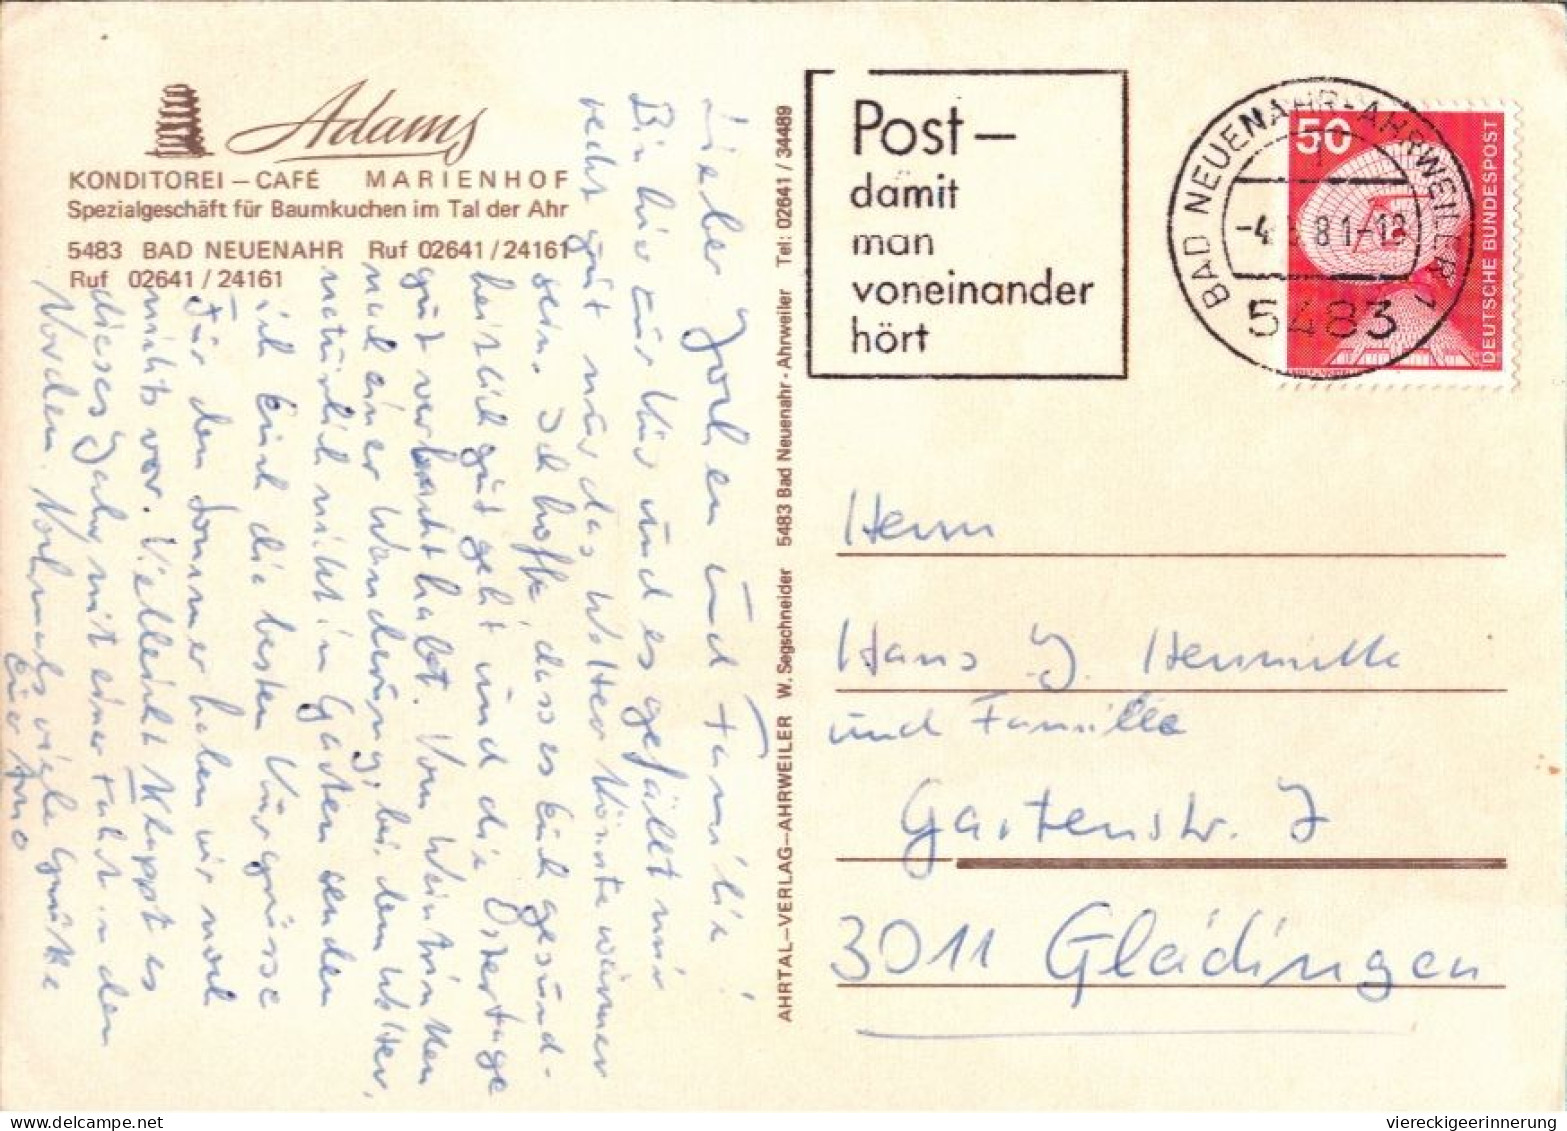 Adams
KONDITOREI – CAFÉ MARIENHOF
Spezialgeschäft für Baumkuchen im Tal der Ahr
5483 BAD NEUENAHR Ruf 02641/24161
Ruf 02641/24161
Lieber Jochen und Familie!
Bin hier zur Kür und es gefällt mir
recht gut nur das Wetter könnte wärmer
sein. Ich hoffe, dass es Euch gesund-
heitlich gut geht und die Ostertage
gut verbracht habt. Vom Weintrinken
nach einer Wanderung, bei dem Wetter,
natürlich nicht im Garten senden
ich Euch die besten Kürgrüsse
Für den Sommer haben wir noch
nichts vor. Vielleicht klappt es
dieses Jahr mit einer Fahrt in den
Norden. Nochmals viele Grüße
Euer
AHRTAL–VERLAG–AHRWEILER W. Segschneider 5483 Bad Neuenahr - Ahrweiler Tel: 02641/34489
Post –
damit
man
voneinander
hört
BAD NEUENAHR-AHRWEILER 1
-4. 81-18
5483
50
DEUTSCHE BUNDESPOST
Herrn
Hans J.
und Familie
Gartenstr. 7
3011 Gleidingen
viereckigeerinnerung